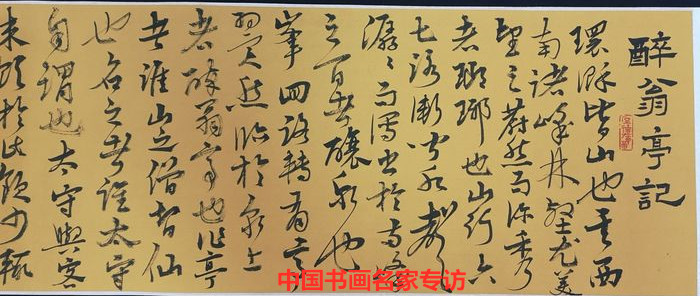 醉翁亭記
環滁皆山也其西
南諸峰林壑尤美
望之蔚然而深秀
者瑯琊也山行六
七里漸聞水聲
潺々而瀉出於兩峰
之間者釀泉也
峯回路轉有亭
翼然臨於泉上
者醉翁亭也作亭
者誰山之僧智仙
也名之者誰太守
自謂也太守與客
來飲於此飲少輒
中国书画名家专访